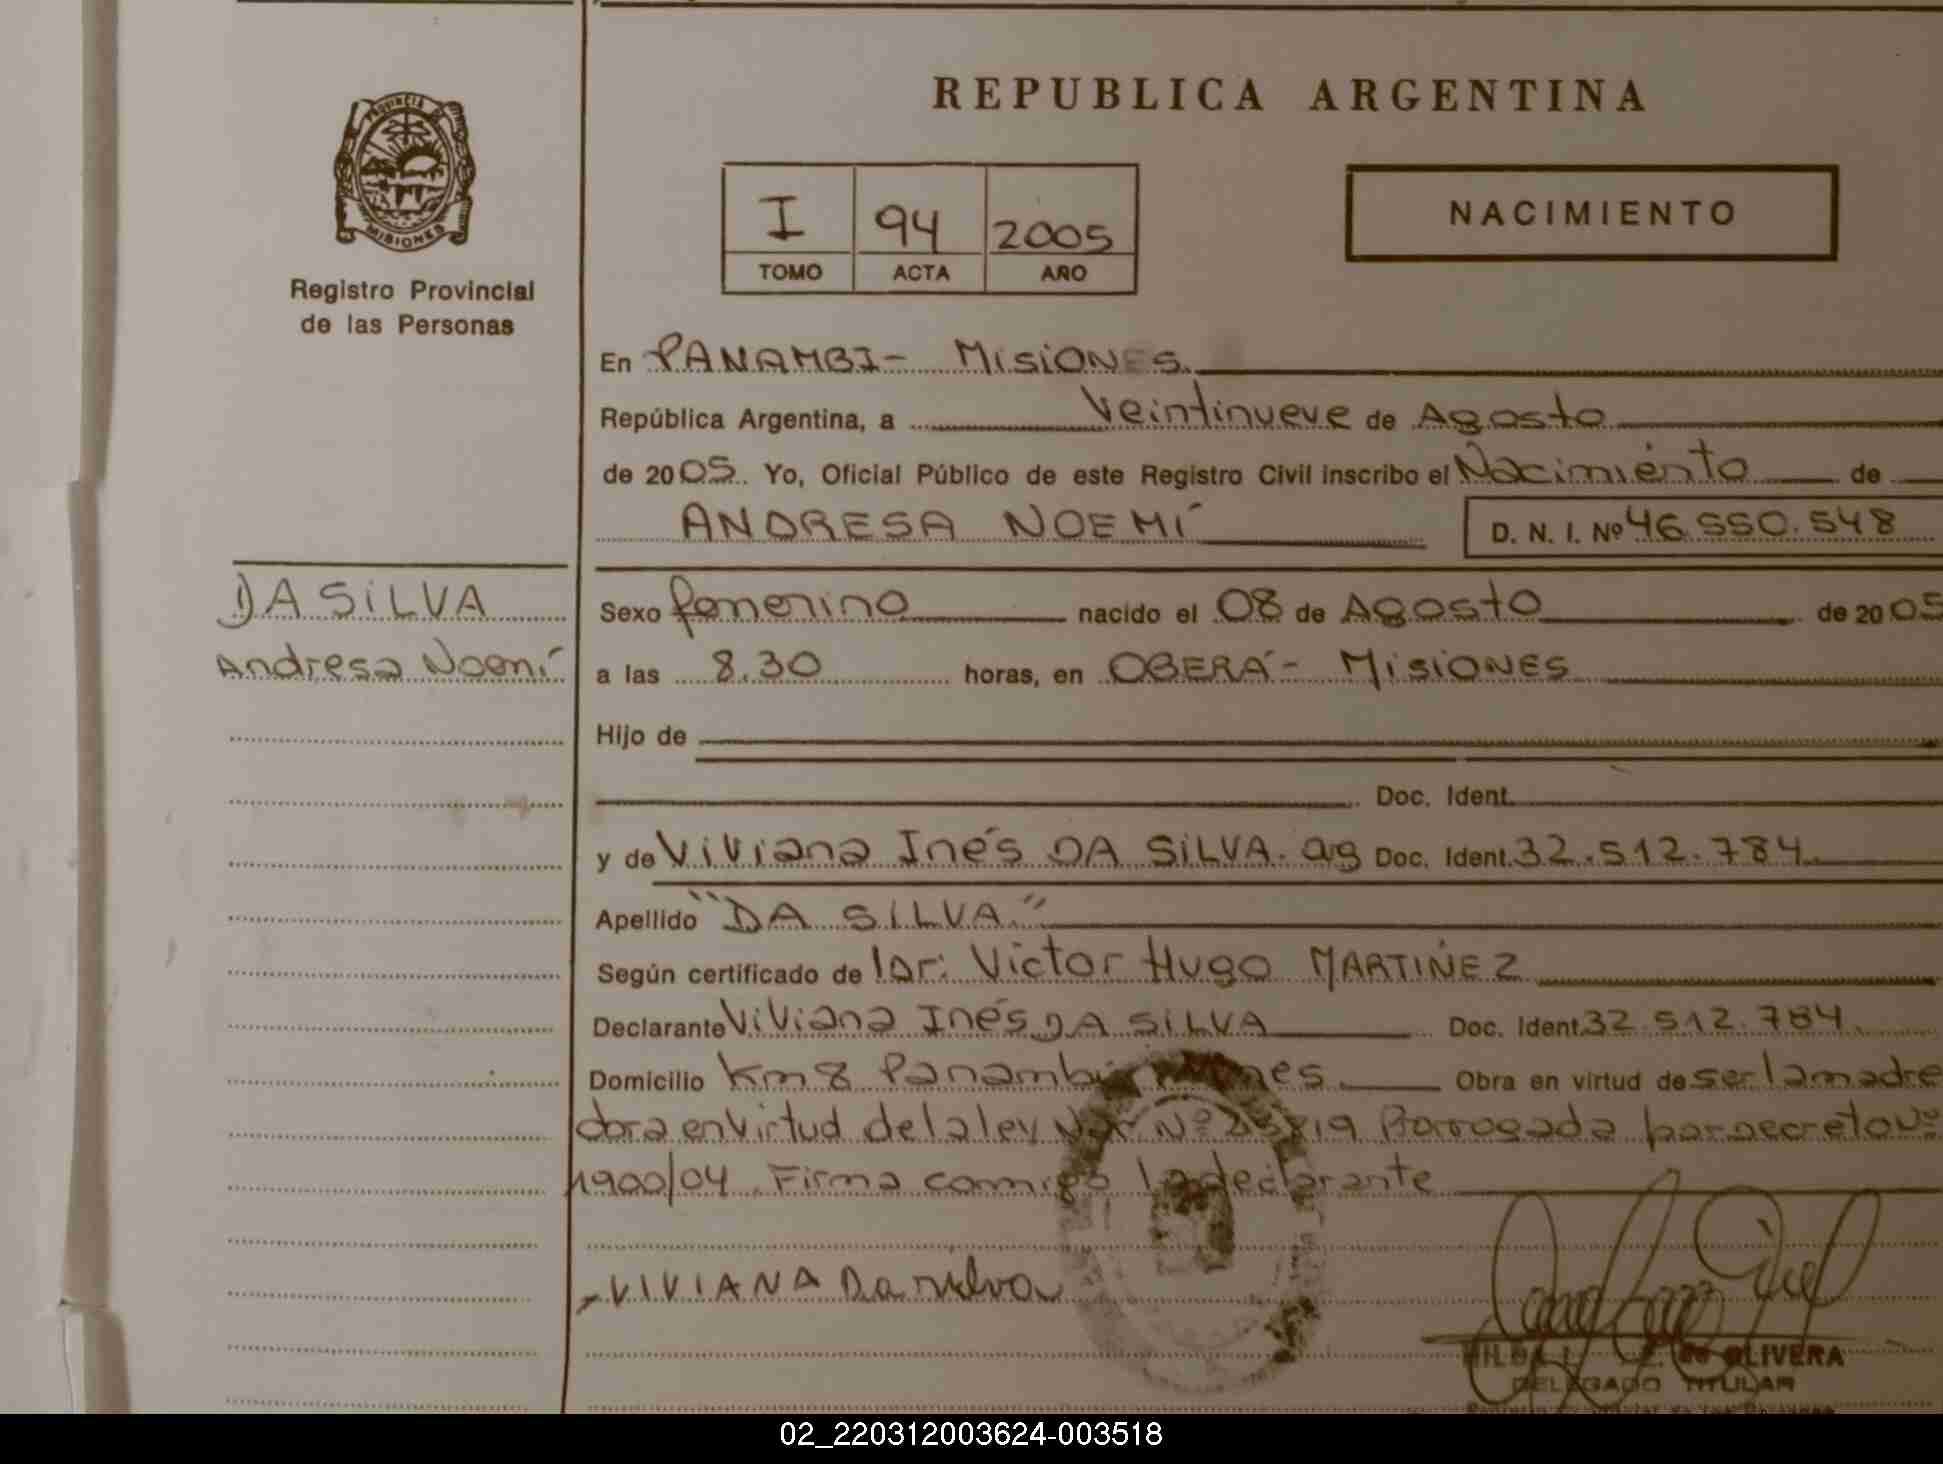 REPUBLICA ARGENTINA
PROVINCIA DE
MISIONES
Registro Provincial
de las Personas
I 94 2005
TOMO ACTA AÑO
NACIMIENTO
En PANAMBI- MISIONES.
República Argentina, a Veintinueve de Agosto
de 2005. Yo, Oficial Público de este Registro Civil inscribo el Nacimiento de
ANDRESA NOEMÍ D. N. I. Nº 46.550.548
DA SILVA
Andresa Noemí
Sexo femenino nacido el 08 de Agosto de 2005
a las 8.30 horas, en OBERÁ- MISIONES
Hijo de
Doc. Ident.
y de Viviana Inés DA SILVA. arg Doc. Ident. 32.512.784.
Apellido "DA SILVA."
Según certificado de Victor Hugo MARTINEZ
Declarante Viviana Inés DA SILVA Doc. Ident. 32.512.784.
Domicilio Km 8 Panambí Obra en virtud de ser la madre
en virtud de la ley Nº por decreto Nº
1900/04. Firma conmigo la declarante
VIVIANA Da silva
OLIVERA
DELEGADO TITULAR
02_220312003624-003518